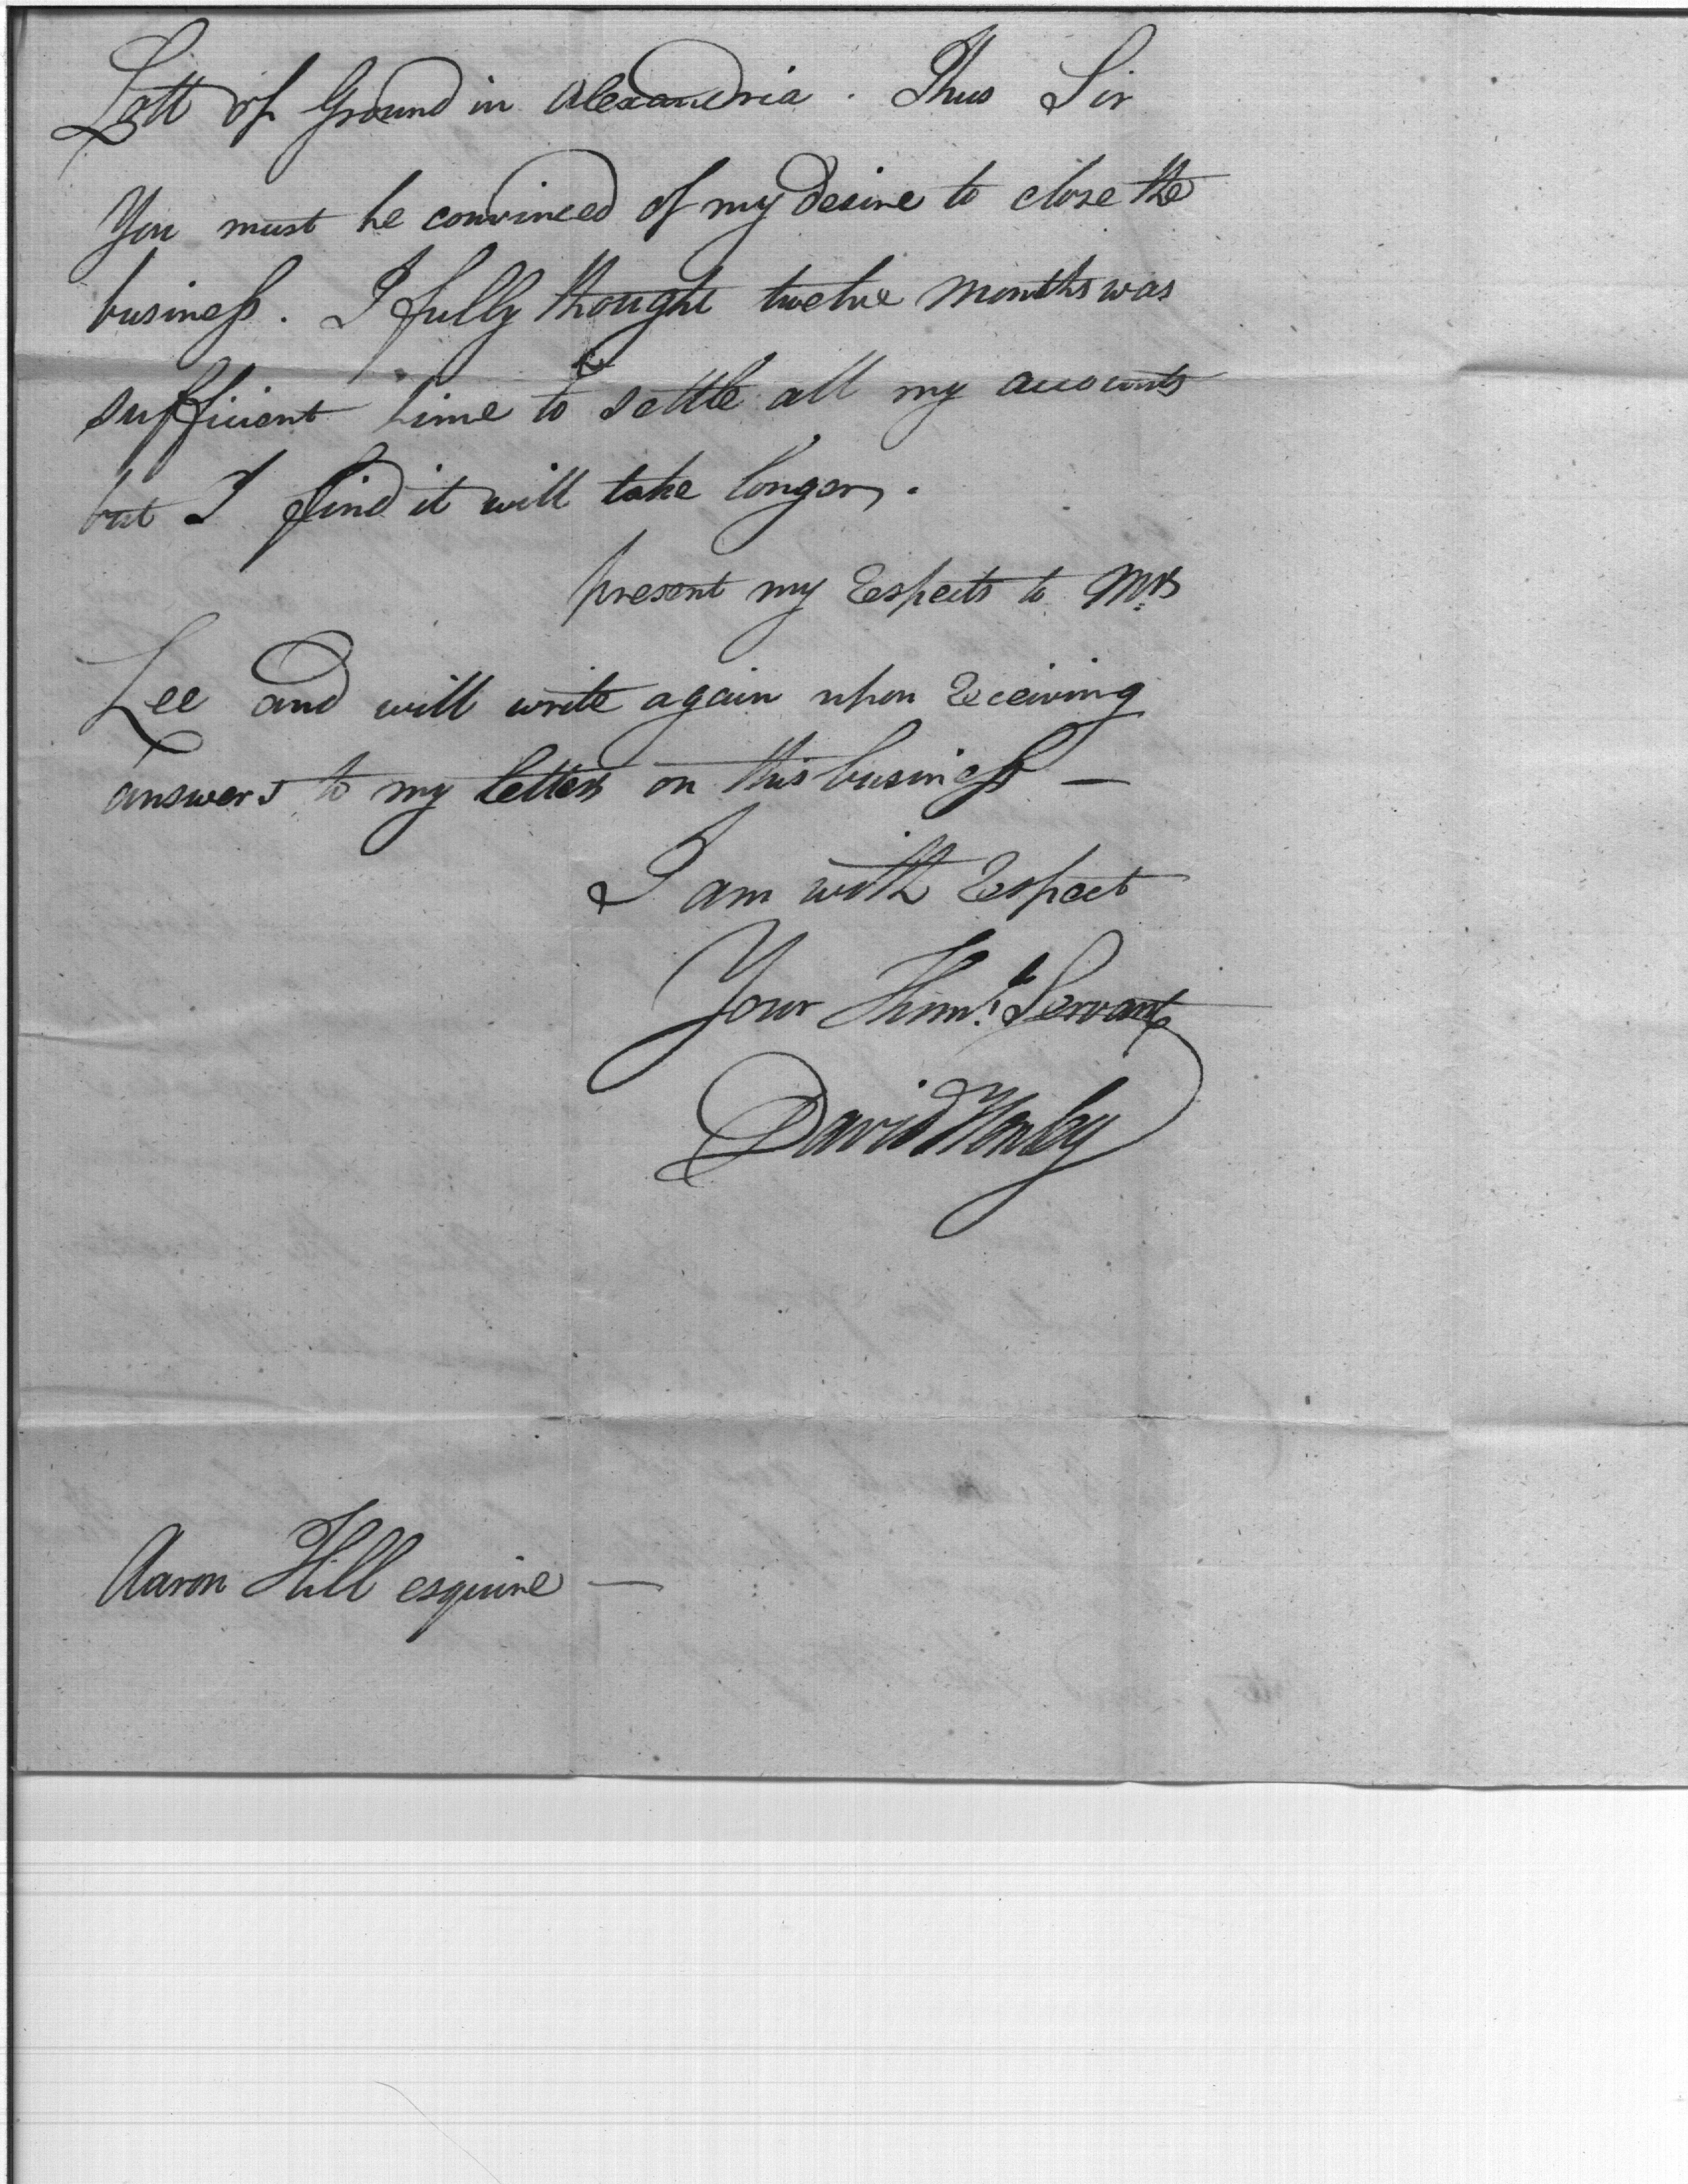 Lott of Ground in Alexandria . Thus Sir
You must be convinced of my desire to close the
business. I fully thought twelve months was
sufficient time to settle all my accounts
but I find it will take longer .
present my Respects to Mrs
Lee and will write again upon Receiving
answers to my letters on this business —
I am with Respect
Your Hum.l Servant
David Henley
Aaron Hill esquire —